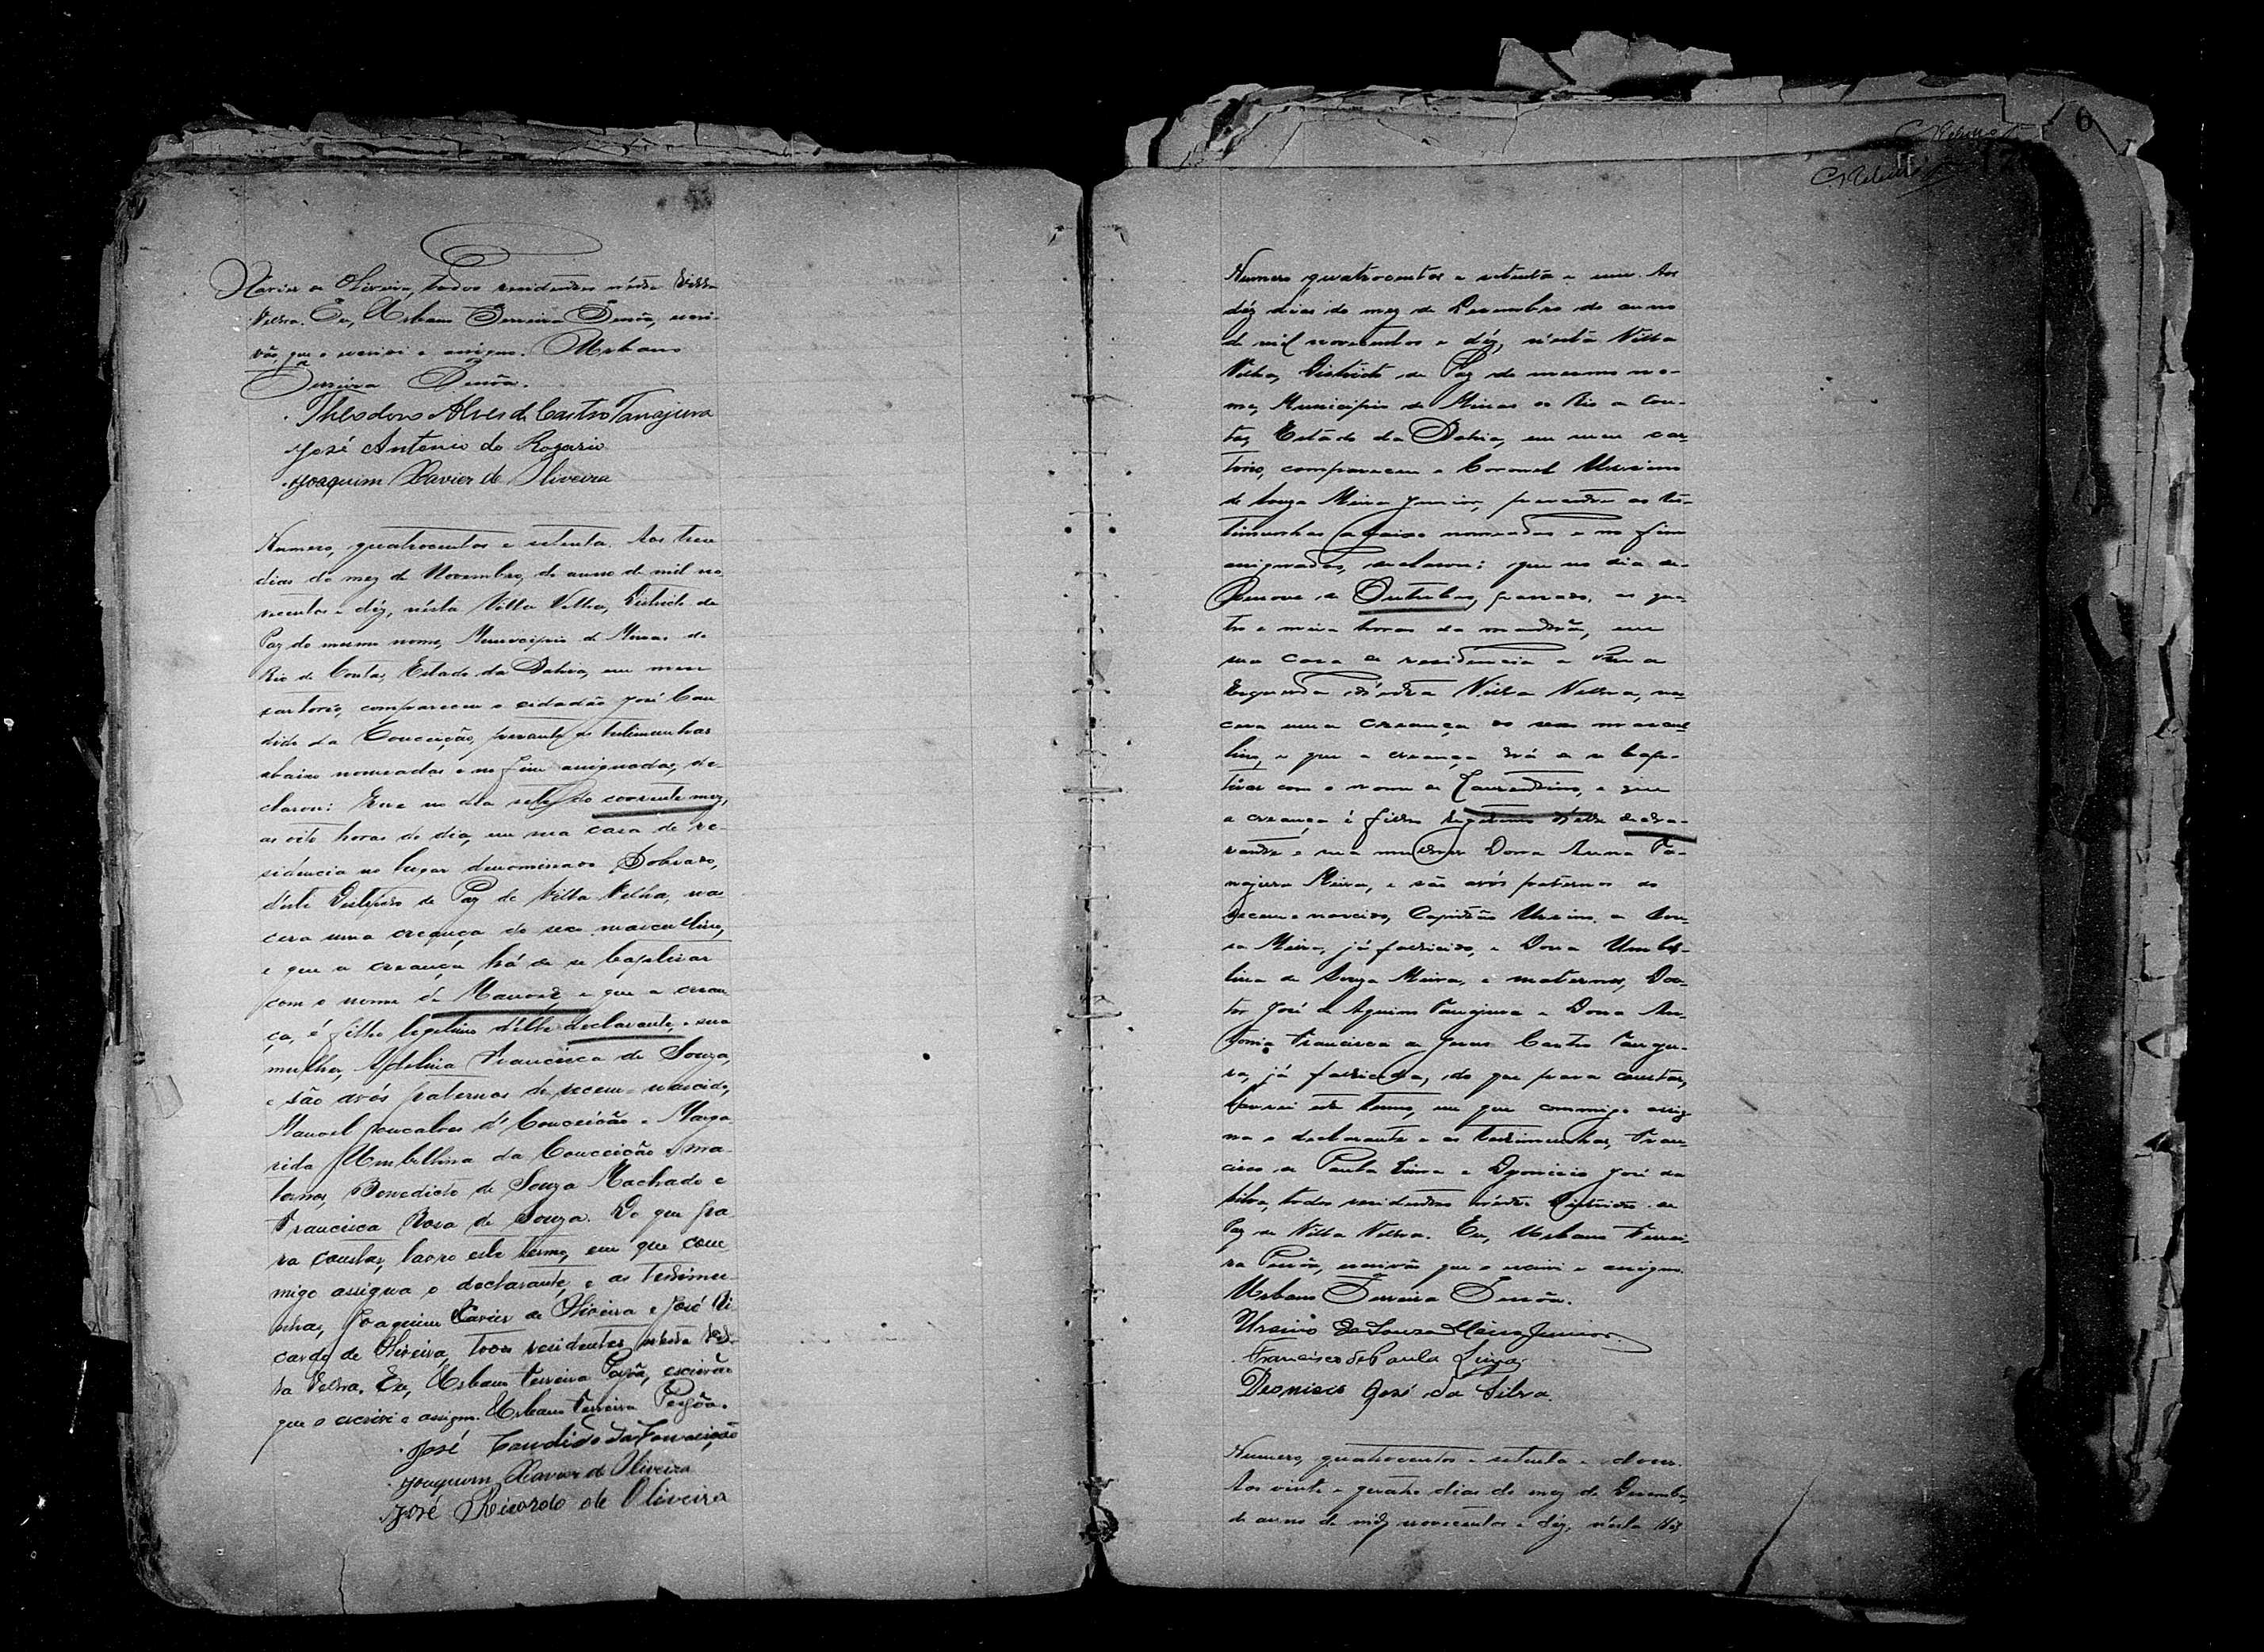 Xavier de Oliveira, todos residentes nésta Villa
Velha. Eu, Urbano Ferreira escri-
vão, que o escrivi e assigno. Urbano
Ferreira
Theodoro Alves de Castro Tanajura
José Antonio do Rozario
Joaquim Xavier de Oliveira
Numero, quatrocentos e setenta. Aos treze
dias do mez de Novembro, do anno de mil no-
vecentos e déz, nésta Villa Velha, Districto de
Paz do mesmo nome, Municipio de Minas do
Rio de Contas, Estado da Bahia, em meu
cartorio, compareceu o cidadão José Can
dido da Conceição, perante as testimunhas
abaixo nomeadas e no fim assignadas, de-
clarou: Que no dia sete do corrente mez,
as oito horas do dia, em sua casa de re-
sidencia no lugar denominado Sobrado,
d'éste Districto de Paz de Villa Velha, nas-
cera uma creança do sexo masculino,
e que a creança há de se baptisar
com o nome de Manoel, e que a crean
ça, é filho legitimo d'élle declarante, e sua
mulher, Adelina Francisca de Souza,
e são avós paternos do recem-nascido,
Manoel Goncalves d' Conceicão e Marga-
rida Umbellina da Conceicão e ma-
ternos, Benedicto de Souza Machado e
Francisca Rosa de Souza. Do que pa-
ra constar, lavro este termo, em que com
migo assigna o declarante, e as testimu-
nhas, Joaquim Xavier de Oliveira e José Ri
cardo de Oliveira, todos residentes nésta Vil-
la Velha. Eu, Urbano Ferreira escrivão
que o escrivi e assigno. Urbano Ferreira
José Candido da Conceição
Joaquim Xavier de Oliveira
José Ricardo de Oliveira
6
Numero quatrocentos e setenta e um. Aos
déz dias do mez de Dezembro do anno
de mil novecentos e déz, nésta Villa
Velha, Districto de Paz do mesmo no-
me, Municipio de Minas do Rio de Con-
tas, Estado da Bahia, em meu car-
torio, compareceu o Coronel Ursino
de Souza Meira Junior, perante as tes-
timunhas abaixo nomeadas e no fim
assignadas, declarou: que no dia de-
zenove de Outubro, passado, as qua-
tro e meia horas da manhã, em
sua casa de residencia a Rua
d'ésta Villa Velha, nas-
cera uma creança do sexo mascu-
lino, e que a creança há de se bap-
tisar com o nome de Laurentino, e que
a creança é filho legitimo d'elle decla-
rante e sua mulher Dona Anna Ta-
najura Meira, e são avós paternos do
recem-nascido, Capitão Ursino de Sou-
za Meira, já fallecido, e Dona Umbel-
lina de Souza Meira, e maternos, Dou-
tor José de Aquino Tanajura e Dona An-
tonia Francisca de Jesus Castro Tanaju-
ra, já fallecida, do que para constar,
lavrei este termo, em que commigo assig-
na o declarante e as testimunhas, Fran-
cisco de Paula e Dyonisio José da
Silva, todos residentes nésta Districto de
Paz de Villa Velha. Eu, Urbano Ferrei-
ra escrivão que o escrivi e assigno.
Urbano Ferreira
Ursino de Souza Meira Junior
Francisco de Paula
Deonisio José da Silva
Numero, quatrocentos e setenta e dous.
Aos vinte e quatro dias do mez de Dezembro,
do anno de mil novecentos e déz, nésta Vil